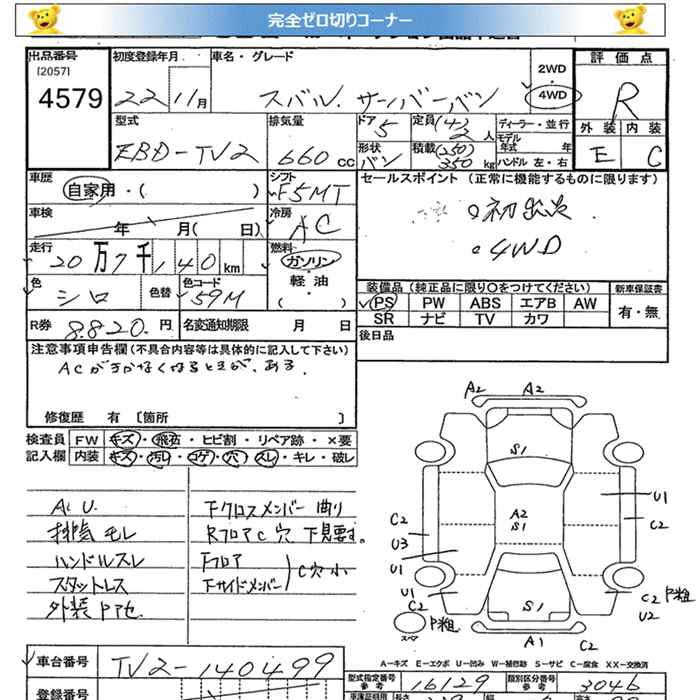 完全ゼロ切りコーナー
出品番号
[2057]
4579
初度登録年月
22年11月
車名・グレード
スバル サンバーバン
2WD
4WD
評価点
R
外装 内装
E C
型式
EBD-TV2
排気量
660cc
ドア 5
形状 バン
定員 (4) 2人
積載 (250) 350kg
ディーラー・並行
モデル年式 年
ハンドル 左・右
車歴
自家用・( )
シフト
F5MT
車検
年 月( 日)
冷房
AC
走行
20万7千140km
燃料
ガソリン・
軽油・
( )
色
シロ
色替
色コード
59M
R券 8.820.円
名変通知期限 月 日
セールスポイント (正常に機能するものに限ります)
。4WD
装備品(純正品に限り〇をつけてください)
新車保証書
PS PW ABS エアB AW
SR ナビ TV カワ
有・無
後日品
注意事項申告欄(不具合内容等は具体的に記入して下さい)
修復歴 有 [箇所 ]
検査員記入欄
FW キズ・飛石・ヒビ割・リペア跡・×要
内装 キズ・汚レ・コゲ・穴・スレ・キレ・破レ
排気モレ
ハンドルスレ
スタットレス
Fクロスメンバー 曲り
RフロアC穴 下見要す。
Fフロア
Fサイドメンバー
C穴小
A2 A2
S1
A2
S1
U1
C2 C2
U3
U1
U1
C2
S1
C2 P粗
U2
P粗
スペア
A1 C2
A-キズ E-エクボ U-凹み W-補修跡 S-サビ C-腐食 XX-交換済
車台番号
TV2-140499
登録番号
型式指定番号 16129
類別区分番号 3046